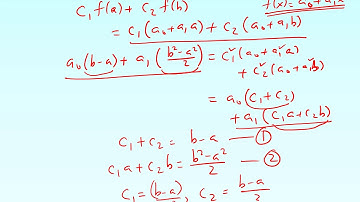 c₁f(a) + c₂ f(b)
f(x) = a₀ + a₁x
= c₁(a₀+a₁a) + c₂(a₀+a₁b)
a₀(b-a) + a₁(b²-a²/2) = c₁(a₀+a₁a)
+ c₂(a₀+a₁b)
= a₀(c₁+c₂)
+ a₁(c₁a+c₂b)
c₁+c₂ = b-a — ①
c₁a+c₂b = b²-a²/2 — ②
c₁ = (b-a)/2, c₂ = b-a/2